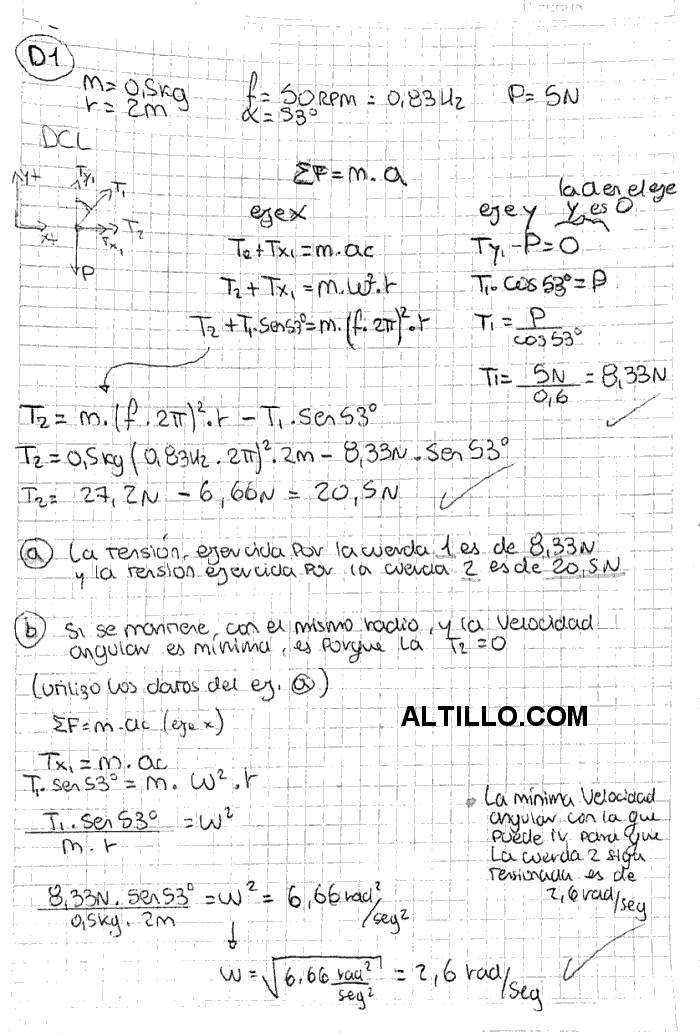 D1
m=0,5kg f=50RPM=0,83Hz P=5N
r=2m α=53°
DCL
ΣF=m.a
y+ Ty₁ T₁ T₂ x+ Tx₁ P
eje x
T₂+Tx₁=m.ac
T₂+Tx₁=m.ω².r
T₂+T₁.sen53°=m.(f.2π)².r
la a en el eje
eje y y es 0
Ty₁-P=0
T₁.cos53°=P
T₁=P/cos53°
T₁=5N/0,6=8,33N
T₂=m.(f.2π)².r-T₁.sen53°
T₂=0,5kg(0,83Hz.2π)².2m-8,33N.sen53°
T₂=27,2N-6,66N=20,5N
a La tensión, ejercida por la cuerda 1 es de 8,33N
y la tension ejercida por la cuerda 2 es de 20,5N
b Si se mantiene, con el mismo radio, y la velocidad
angular es mínima, es porque la T₂=0
(utilizo los datos del ej. a)
ΣF=m.ac (eje x)
ALTILLO.COM
Tx₁=m.ac
T₁.sen53°=m.ω².r
T₁.sen53°/m.r=ω²
8,33N.sen53°/0,5kg.2m=ω²=6,66rad²/seg²
ω=√6,66rad²/seg²=2,6rad/seg
La mínima velocidad
angular con la que
puede ir para que
la cuerda 2 siga
tensionada es de
2,6rad/seg